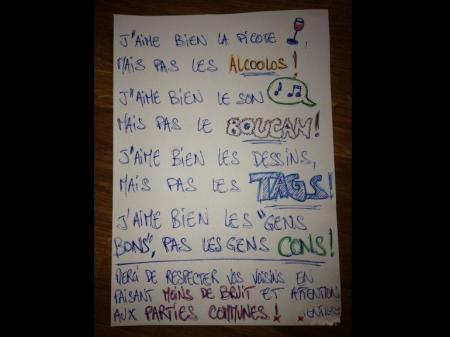 J'AIME BIEN LA PICOTE,
MAIS PAS LES ALCOOLOS !
J'AIME BIEN LE SON
MAIS PAS LE BOUCAN !
J'AIME BIEN LES DESSINS,
MAIS PAS LES TAGS !
J'AIME BIEN LES "GENS
BONS", PAS LES GENS CONS !
MERCI DE RESPECTER VOS VOISINS EN
FAISANT MOINS DE BRUIT ET ATTENTION
AUX PARTIES COMMUNES !